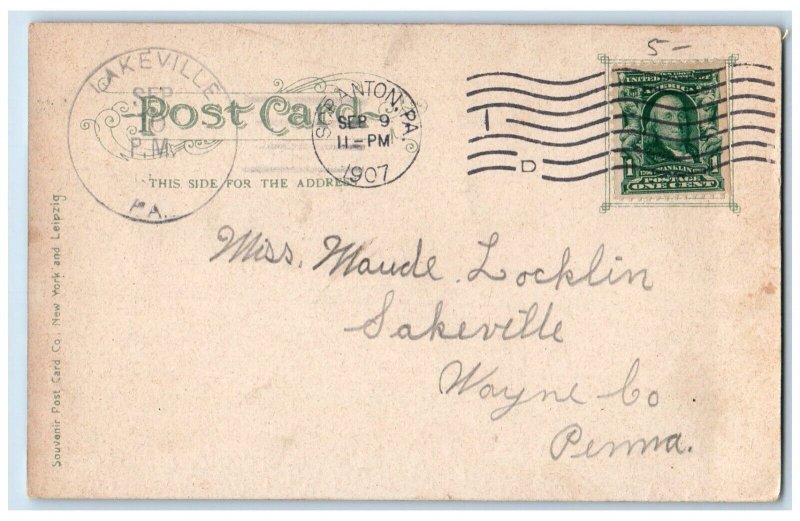 5-
LAKEVILLE
SEP
10
P.M.
PA.
Post Card
THIS SIDE FOR THE ADDRESS
SCRANTON, PA.
SEP 9
11-PM
1907
1
D
UNITED STATES OF AMERICA
FRANKLIN
POSTAGE
ONE CENT
Miss. Maude. Locklin
Lakeville
Wayne Co
Penna.
Souvenir Post Card Co. New York and Leipzig